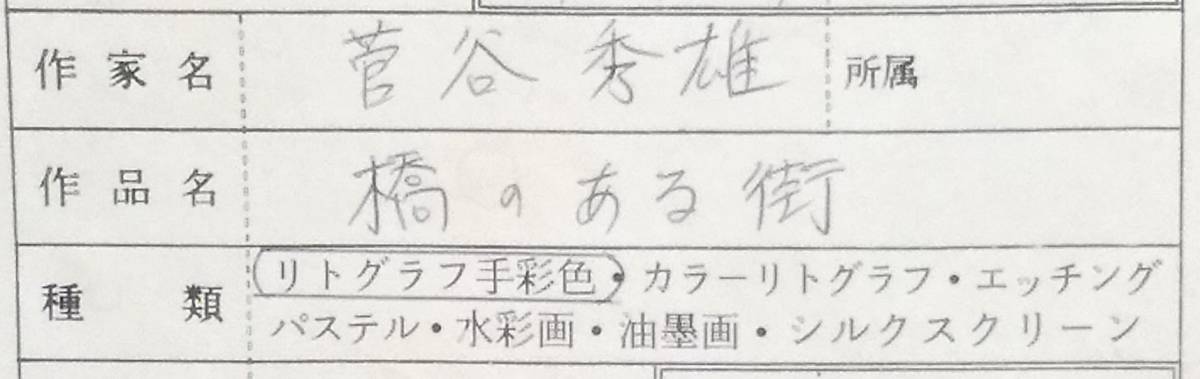 作家名 菅谷秀雄 所属
作品名 橋のある街
種類 リトグラフ手彩色・カラーリトグラフ・エッチング
パステル・水彩画・油墨画・シルクスクリーン